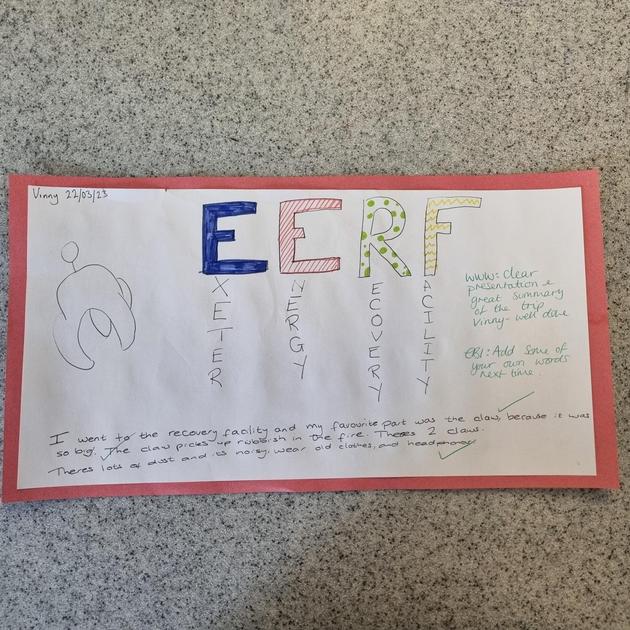 Vinny 22/03/23
EERF
EXETER
ENERGY
RECOVERY
FACILITY
www: clear
presentation &
great summary
of the trip
Vinny - well done
EBI: Add some of
your own words
next time.
I went to the recovery facility and my favourite part was the claw, because it was
so big. The claw picks up rubbish in the fire. Theres 2 claws.
Theres lots of dust and its noisy. wear old clothes, and headphones